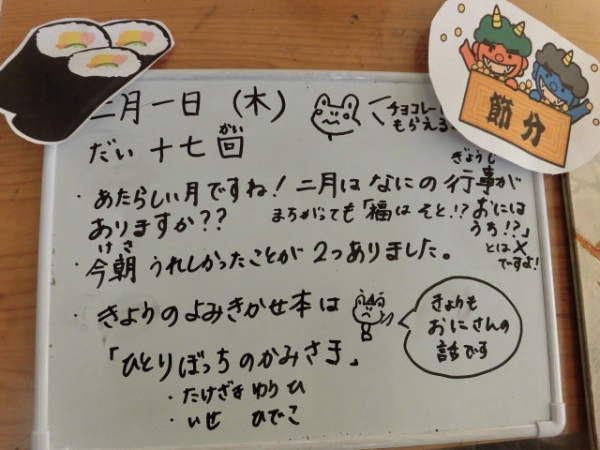 二月一日（木）
チョコレー
もらえる
節分
だい十七回
がい
・あたらしい月ですね！二月はなにの行事が
ぎょうじ
ありますか？？
まちがっても「福はそと!？おには
うち!？」
とは×
ですよ！
・今朝うれしかったことが2つありました。
けさ
・きょうのよみきかせ本は
「ひとりぼっちのかみさま」
きょうも
おにさんの
話です
・たけざき ゆり ひ
・いせ ひでこ